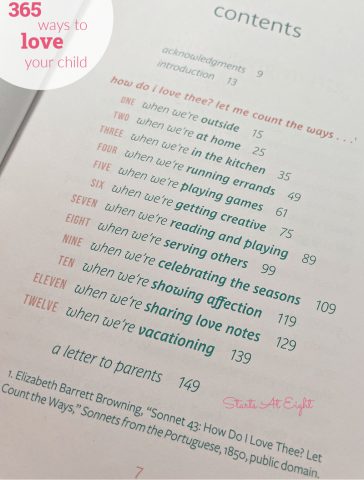 365
ways to
love
your child
contents
acknowledgments 9
introduction 13
how do i love thee? let me count the ways . . .¹
ONE when we're outside 15
TWO when we're at home 25
THREE when we're in the kitchen 35
FOUR when we're running errands 49
FIVE when we're playing games 61
SIX when we're getting creative 75
SEVEN when we're reading and playing 89
EIGHT when we're serving others 99
NINE when we're celebrating the seasons 109
TEN when we're showing affection 119
ELEVEN when we're sharing love notes 129
TWELVE when we're vacationing 139
a letter to parents 149
Starts At Eight
1. Elizabeth Barrett Browning, "Sonnet 43: How Do I Love Thee? Let
Count the Ways," Sonnets from the Portuguese, 1850, public domain.
7